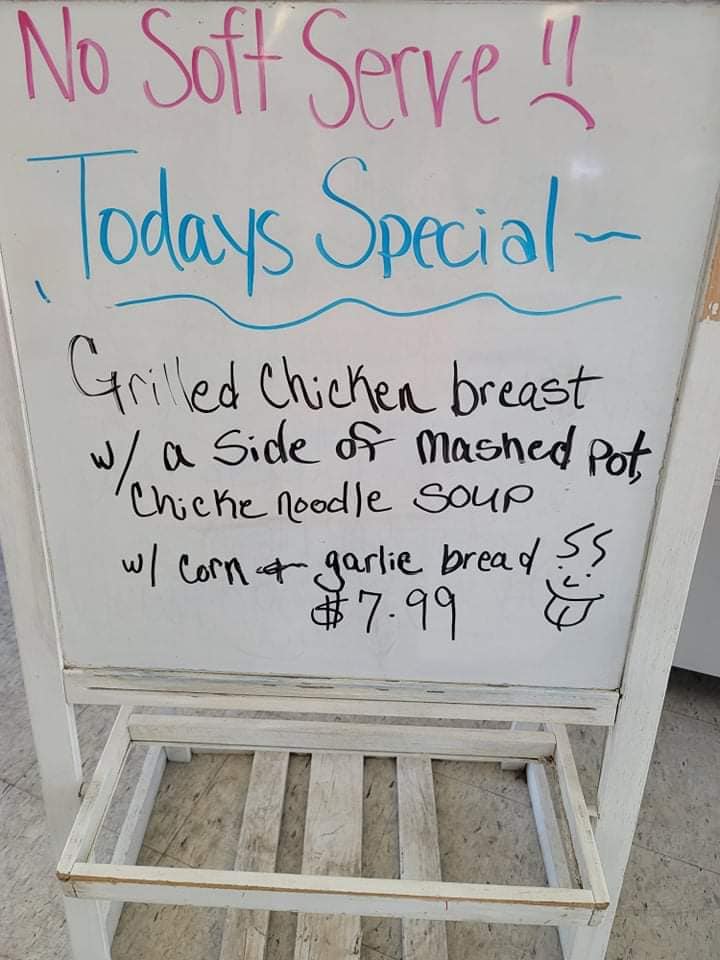 No Soft Serve !!
Todays Special ~
Grilled Chicken breast
w/ a side of mashed Pot,
Chicke noodle soup
w/ corn + garlic bread
$7.99